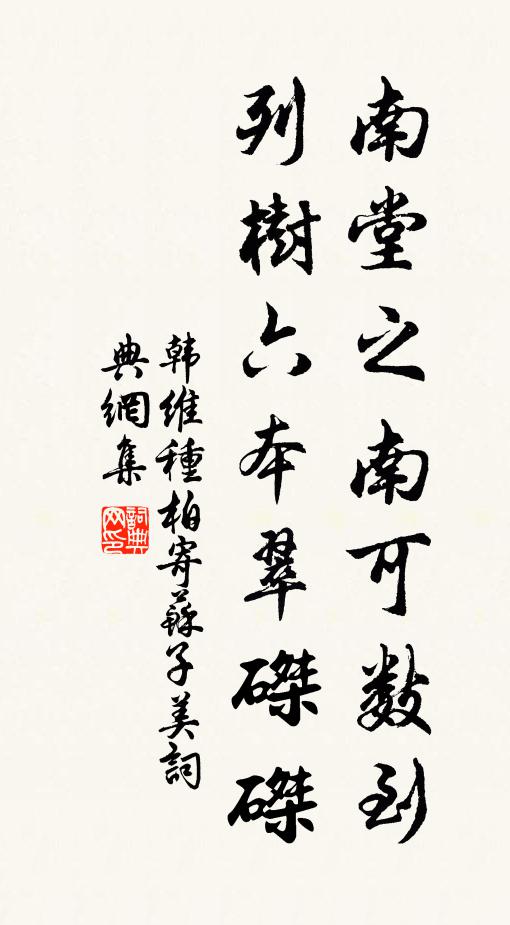 南堂之南可数到
列樹六本翠磔磔
韩維種柏寄蘇子美詞
典網集
詞典网印